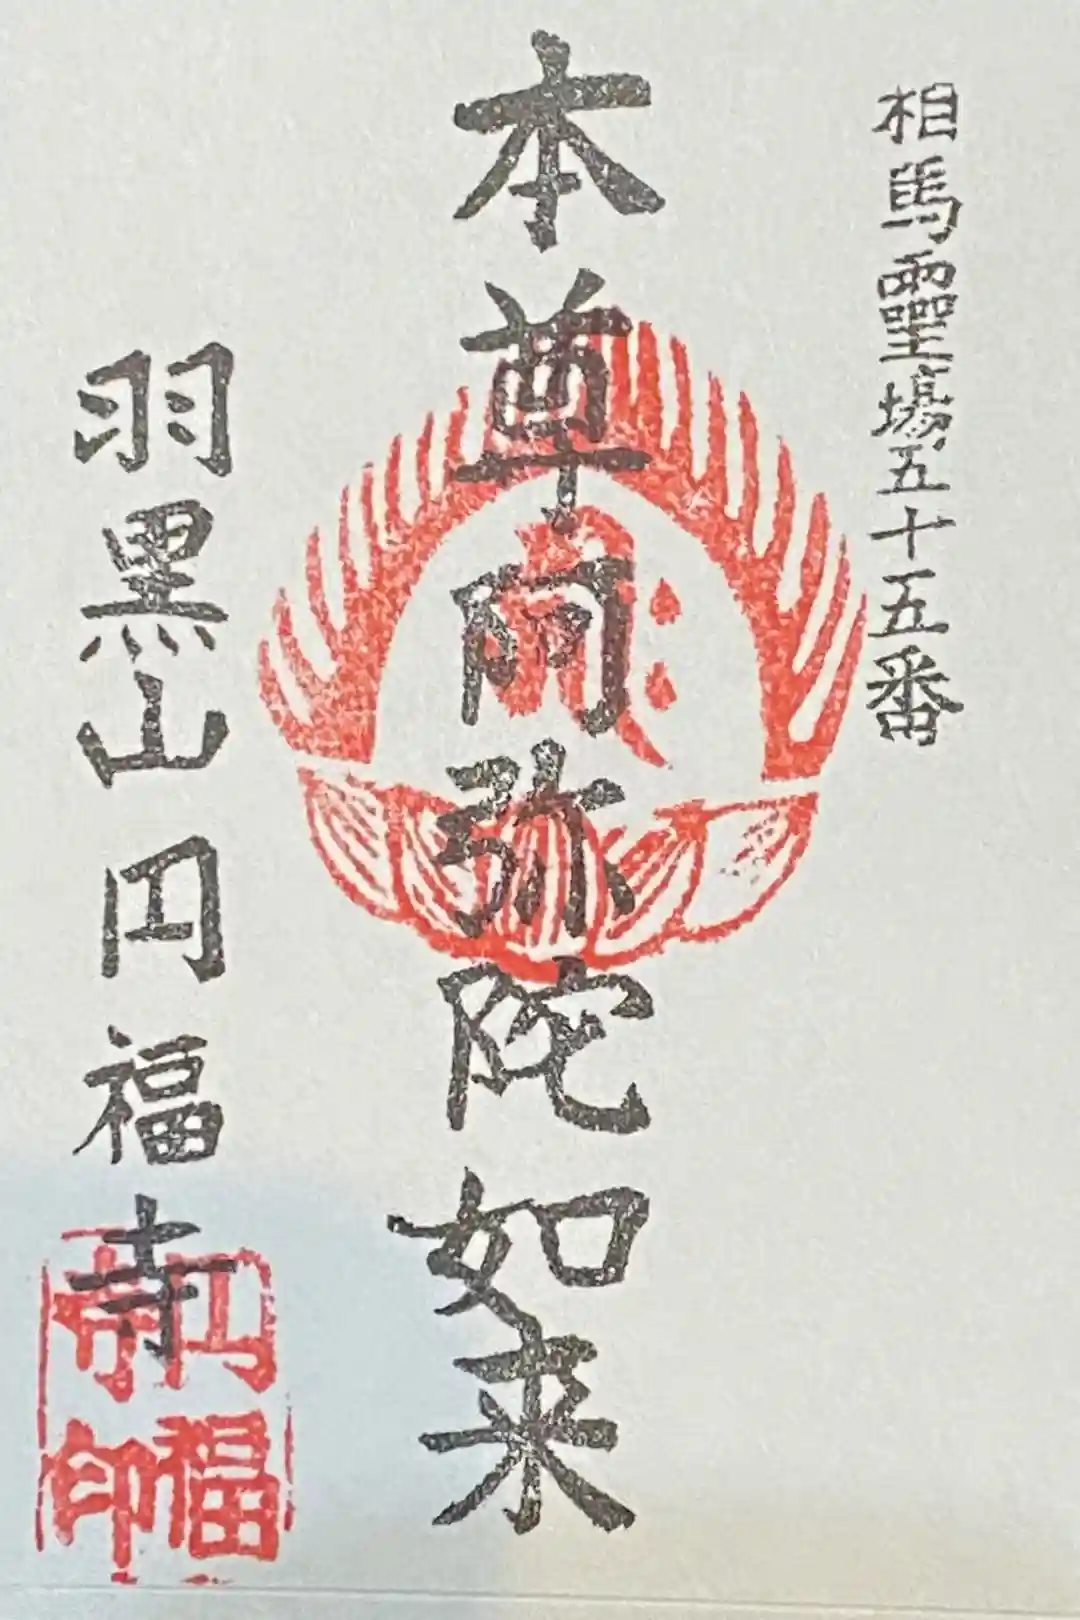 相馬霊場五十五番
本尊阿弥陀如来
羽黒山円福寺
円福
寺印